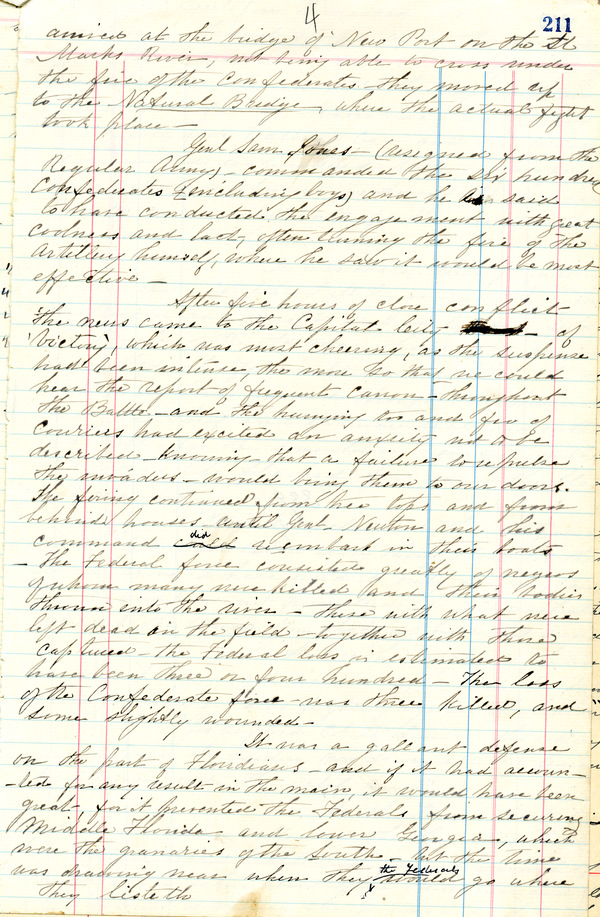 4
211
arrived at the bridge of New Port on the St
Marks River, not being able to cross under
the fire of the Confederates they moved up
to the Natural Bridge, where the actual fight
took place—
Genl Sam Jones— (resigned from the
Regular Army)— commanded the six hundred
Confederates (including boys) and he is said
to have conducted the engagement with great
coolness and tact, often turning the fire of the
Artillery himself, where he saw it would be most
effective—
After five hours of close conflict
the news came to the Capital City — of
"Victory", which was most cheering, as the suspense
had been intense, the more so that we could
hear the report of frequent canon— throughout
the Battle— and the hurrying to and fro of
Couriers had excited an anxiety not to be
described— knowing that a failure to repulse
the invaders— would bring them to our doors.
The firing continued from tree tops and from
behind houses until Genl. Newton and his
command did reembark in their boats
— The Federal force consisted greatly of negros
of whom many were killed and their bodies
thrown into the river— these with what were
left dead on the field— together with those
captured— the Federal loss is estimated to
have been three or four hundred— The loss
of the Confederate force was three killed, and
some slightly wounded—
It was a gallant defense
on the part of Floridians— and if it had accoun-
-ted for any result in the main, it would have been
great, for it prevented the Federals from securing
Middle Florida and lower Georgia, which
were the granaries of the South— but the time
was drawing near when the Federals would go where
they listeth